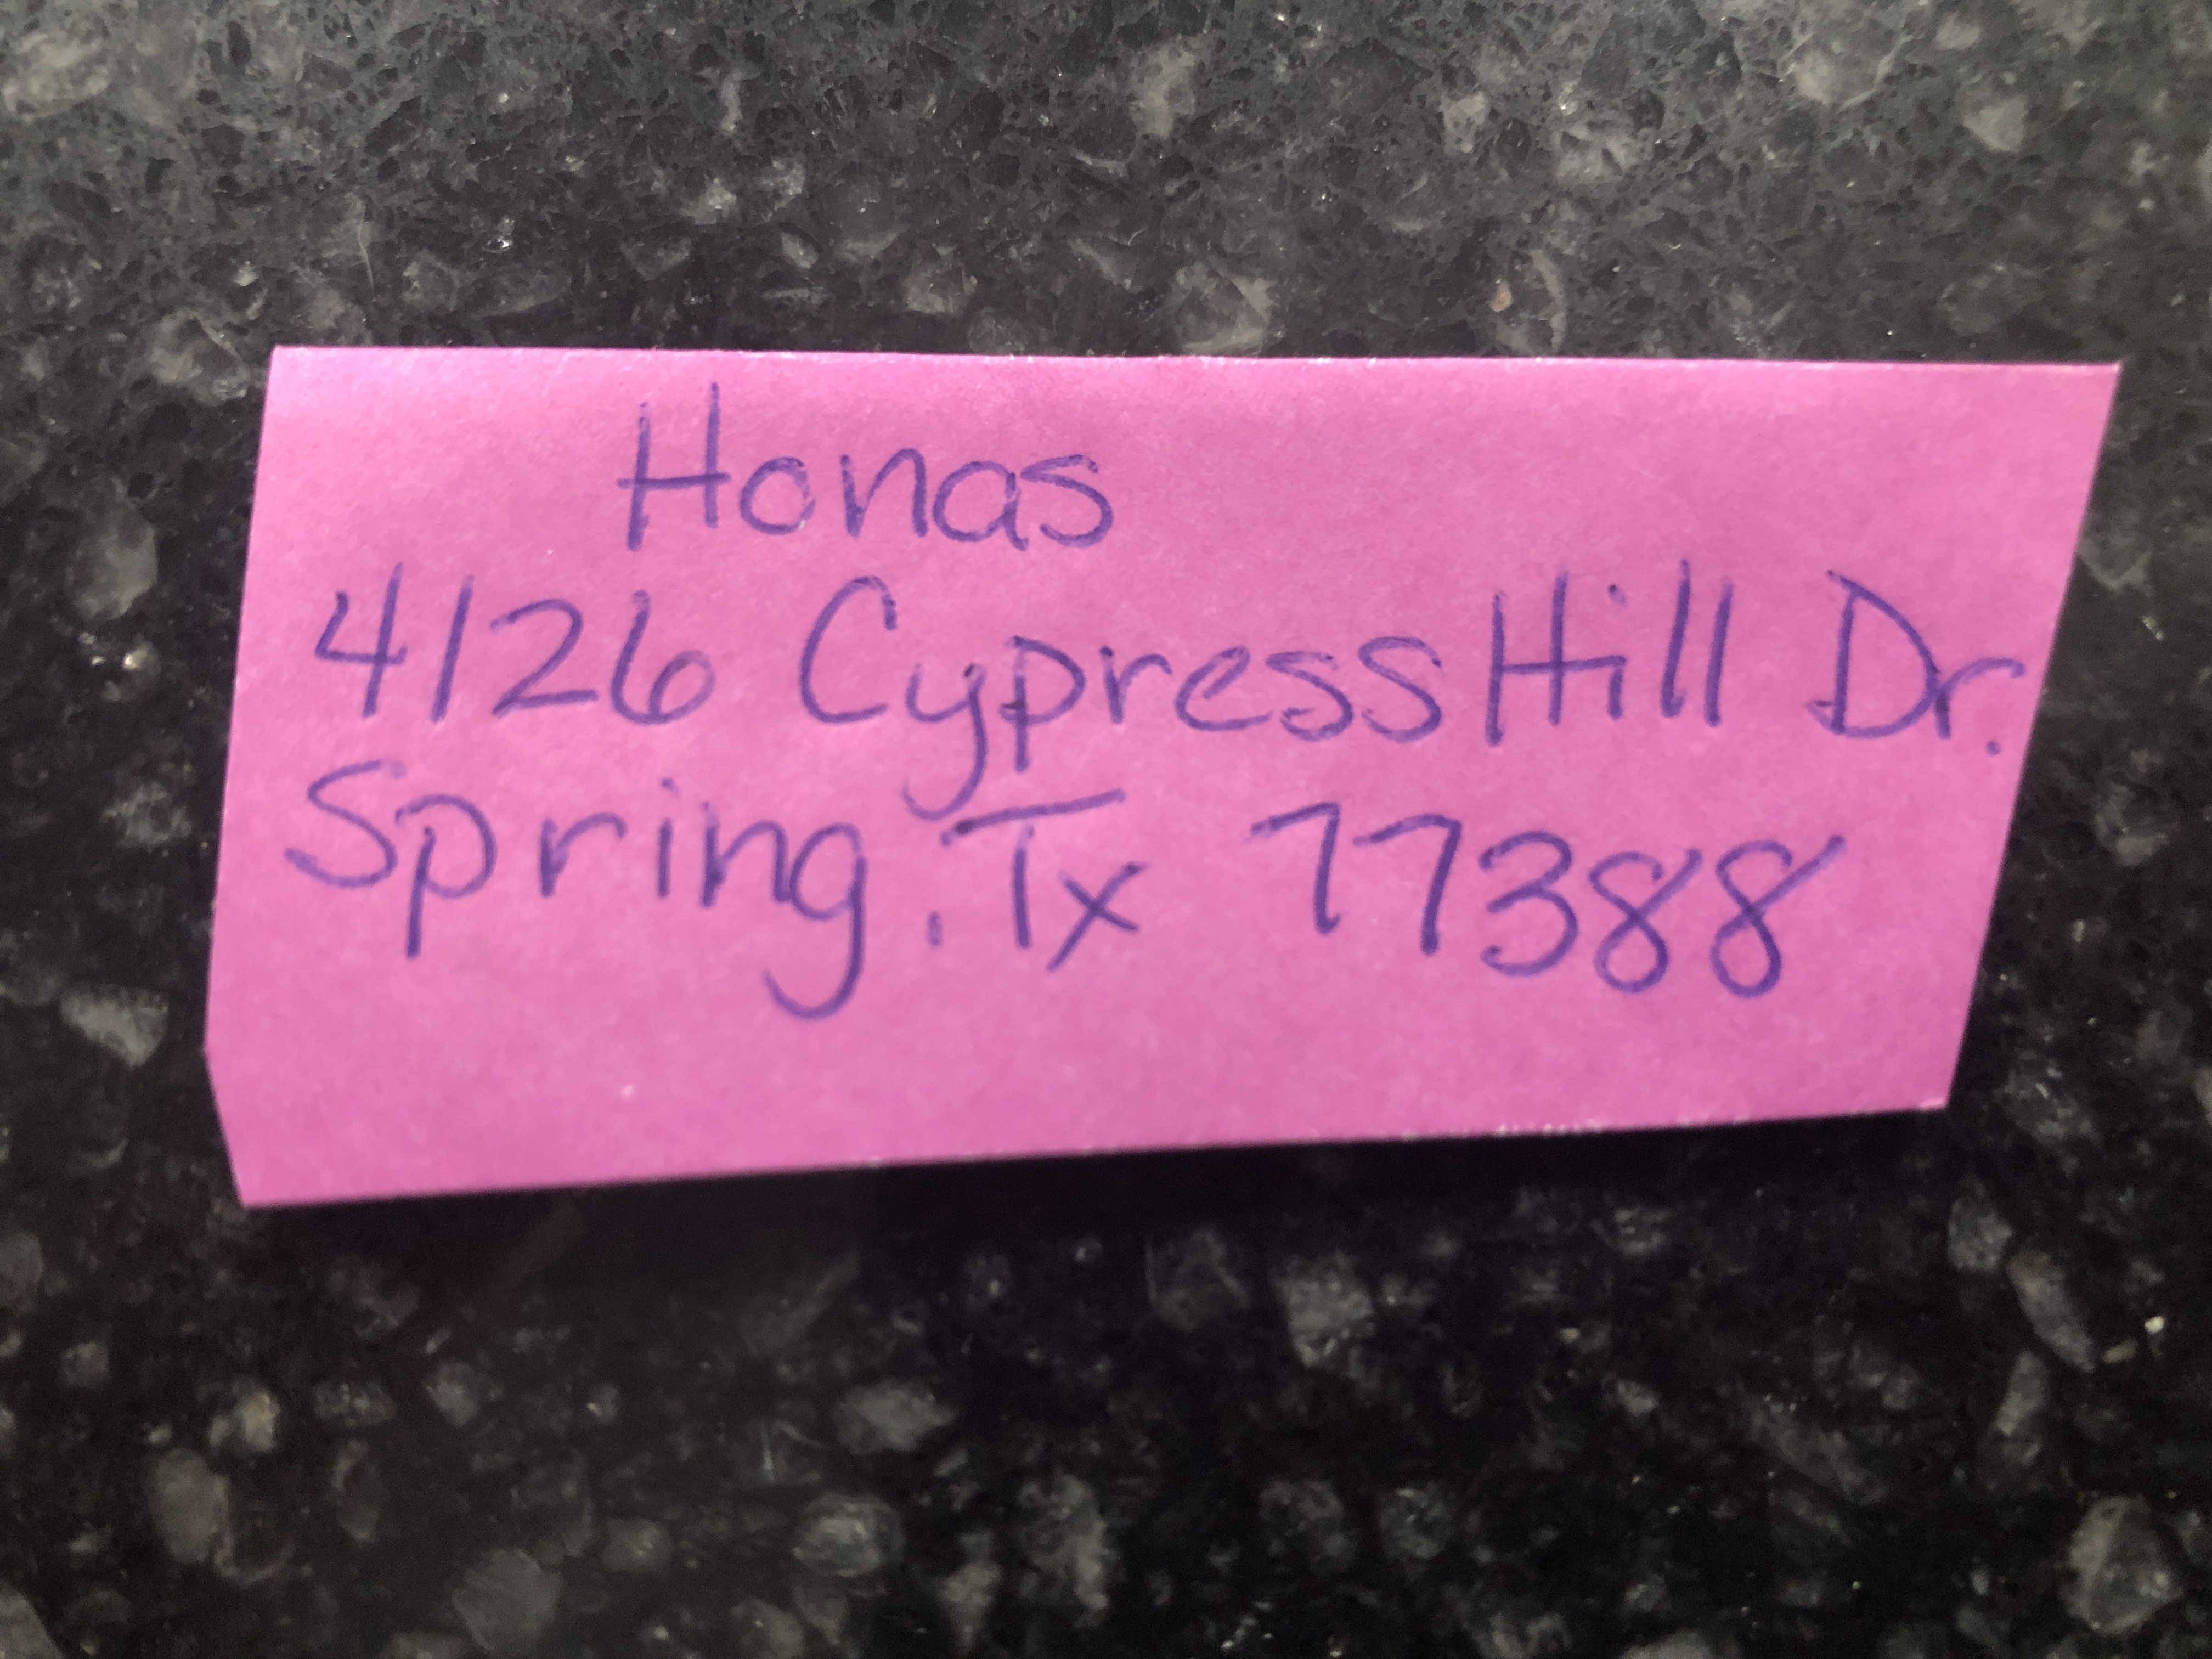 Honas
4126 Cypress Hill Dr.
Spring. Tx 77388